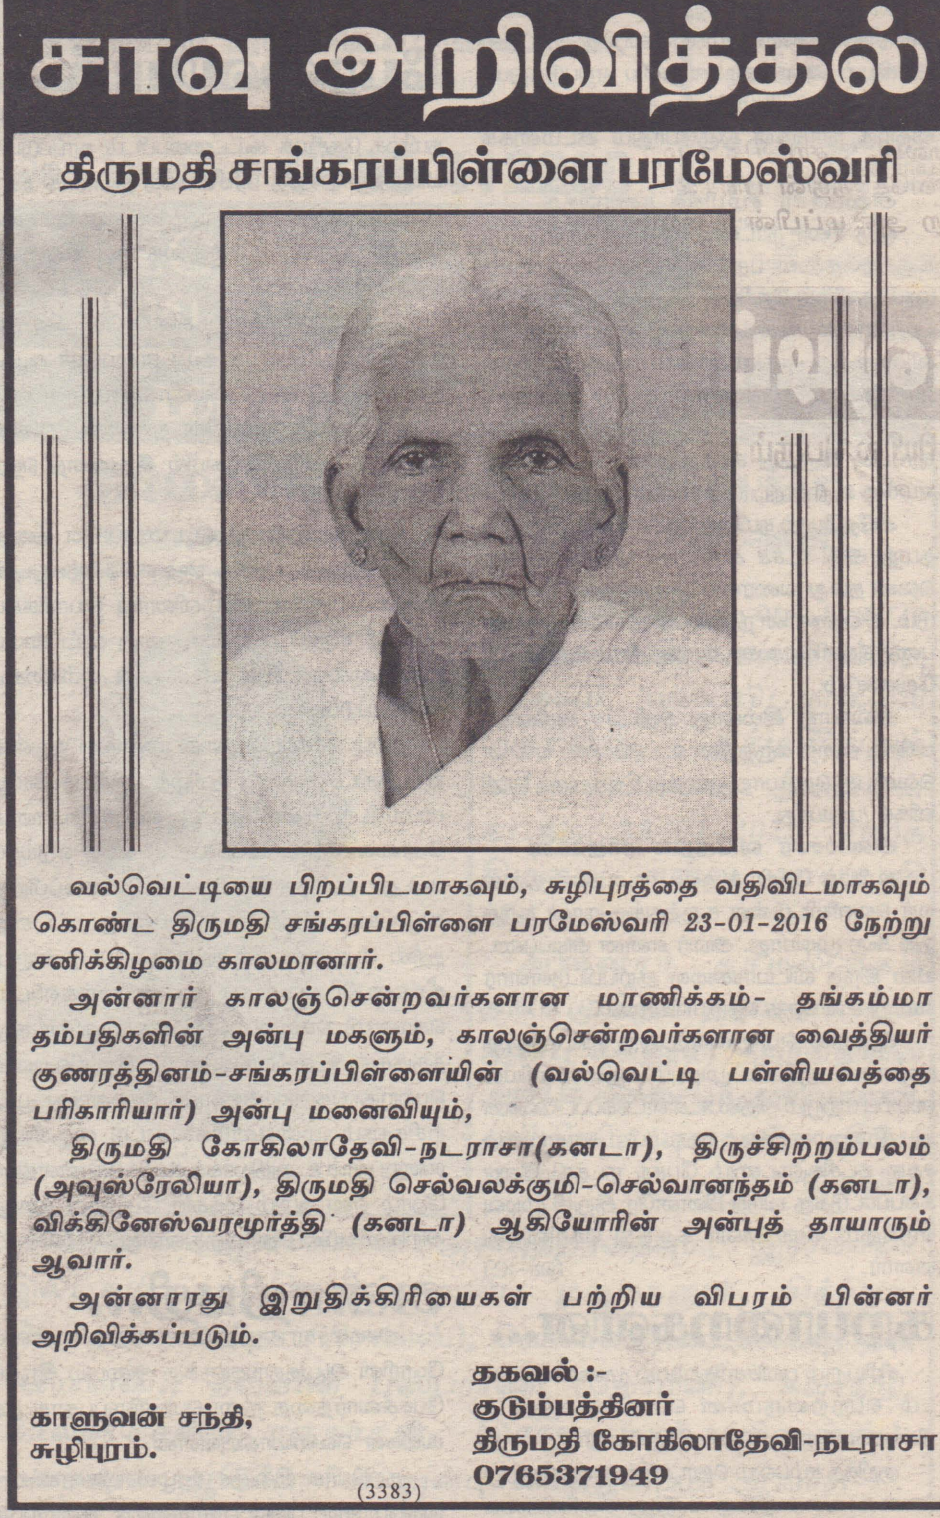 சாவு அறிவித்தல்
திருமதி சங்கரப்பிள்ளை பரமேஸ்வரி
வல்வெட்டியை பிறப்பிடமாகவும், சுழிபுரத்தை வதிவிடமாகவும்
கொண்ட திருமதி சங்கரப்பிள்ளை பரமேஸ்வரி 23-01-2016 நேற்று
சனிக்கிழமை காலமானார்.
அன்னார் காலஞ்சென்றவர்களான மாணிக்கம்- தங்கம்மா
தம்பதிகளின் அன்பு மகளும், காலஞ்சென்றவர்களான வைத்தியர்
குணரத்தினம்-சங்கரப்பிள்ளையின் (வல்வெட்டி பள்ளியவத்தை
பரிகாரியார்) அன்பு மனைவியும்,
திருமதி கோகிலாதேவி-நடராசா(கனடா), திருச்சிற்றம்பலம்
(அவுஸ்ரேலியா), திருமதி செல்வலக்குமி-செல்வானந்தம் (கனடா),
விக்கினேஸ்வரமூர்த்தி (கனடா) ஆகியோரின் அன்புத் தாயாரும்
ஆவார்.
அன்னாரது இறுதிக்கிரியைகள் பற்றிய விபரம் பின்னர்
அறிவிக்கப்படும்.
காளுவன் சந்தி,
சுழிபுரம்.
தகவல் :-
குடும்பத்தினர்
திருமதி கோகிலாதேவி-நடராசா
0765371949
(3383)